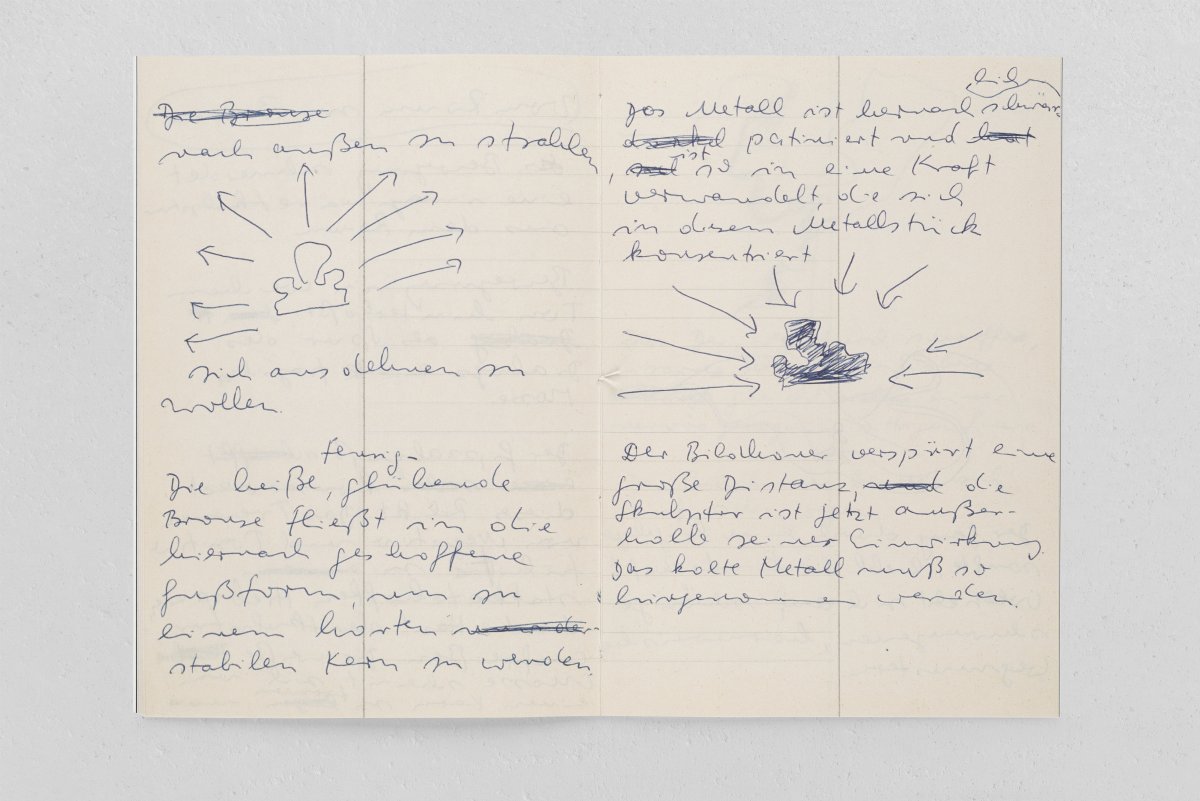 Die Bronze
nach außen zu strahlen,
sich ausdehnen zu
wollen.
feurig-
Die heiße, glühende
Bronze fließt in die
hiernach geschaffene
Gußform, um zu
einem harten
stabilen Kern zu werden.
lich
Das Metall ist hernach schwärz-
patiniert und hat
ist
, und so in eine Kraft
verwandelt, die sich
in diesem Metallstück
konzentriert
Der Bildhauer verspürt eine
große Distanz, und die
Skulptur ist jetzt außer-
halb seiner Einwirkung.
Das kalte Metall muß so
hingenommen werden.